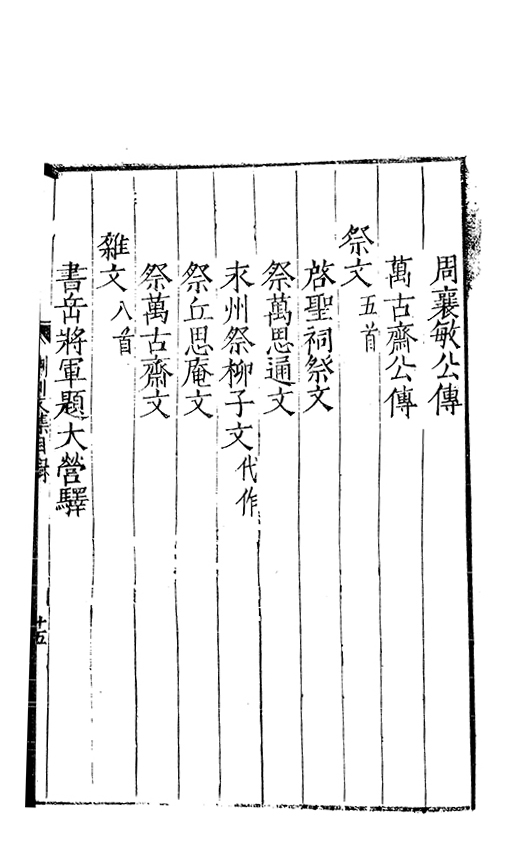 周襄敏公傳
萬古齋公傳
祭文五首
啓聖祠祭文
祭萬思通文
永州祭柳子文代作
祭丘思庵文
祭萬古齋文
雜文八首
書岳將軍題大營驛
文集目録
十五